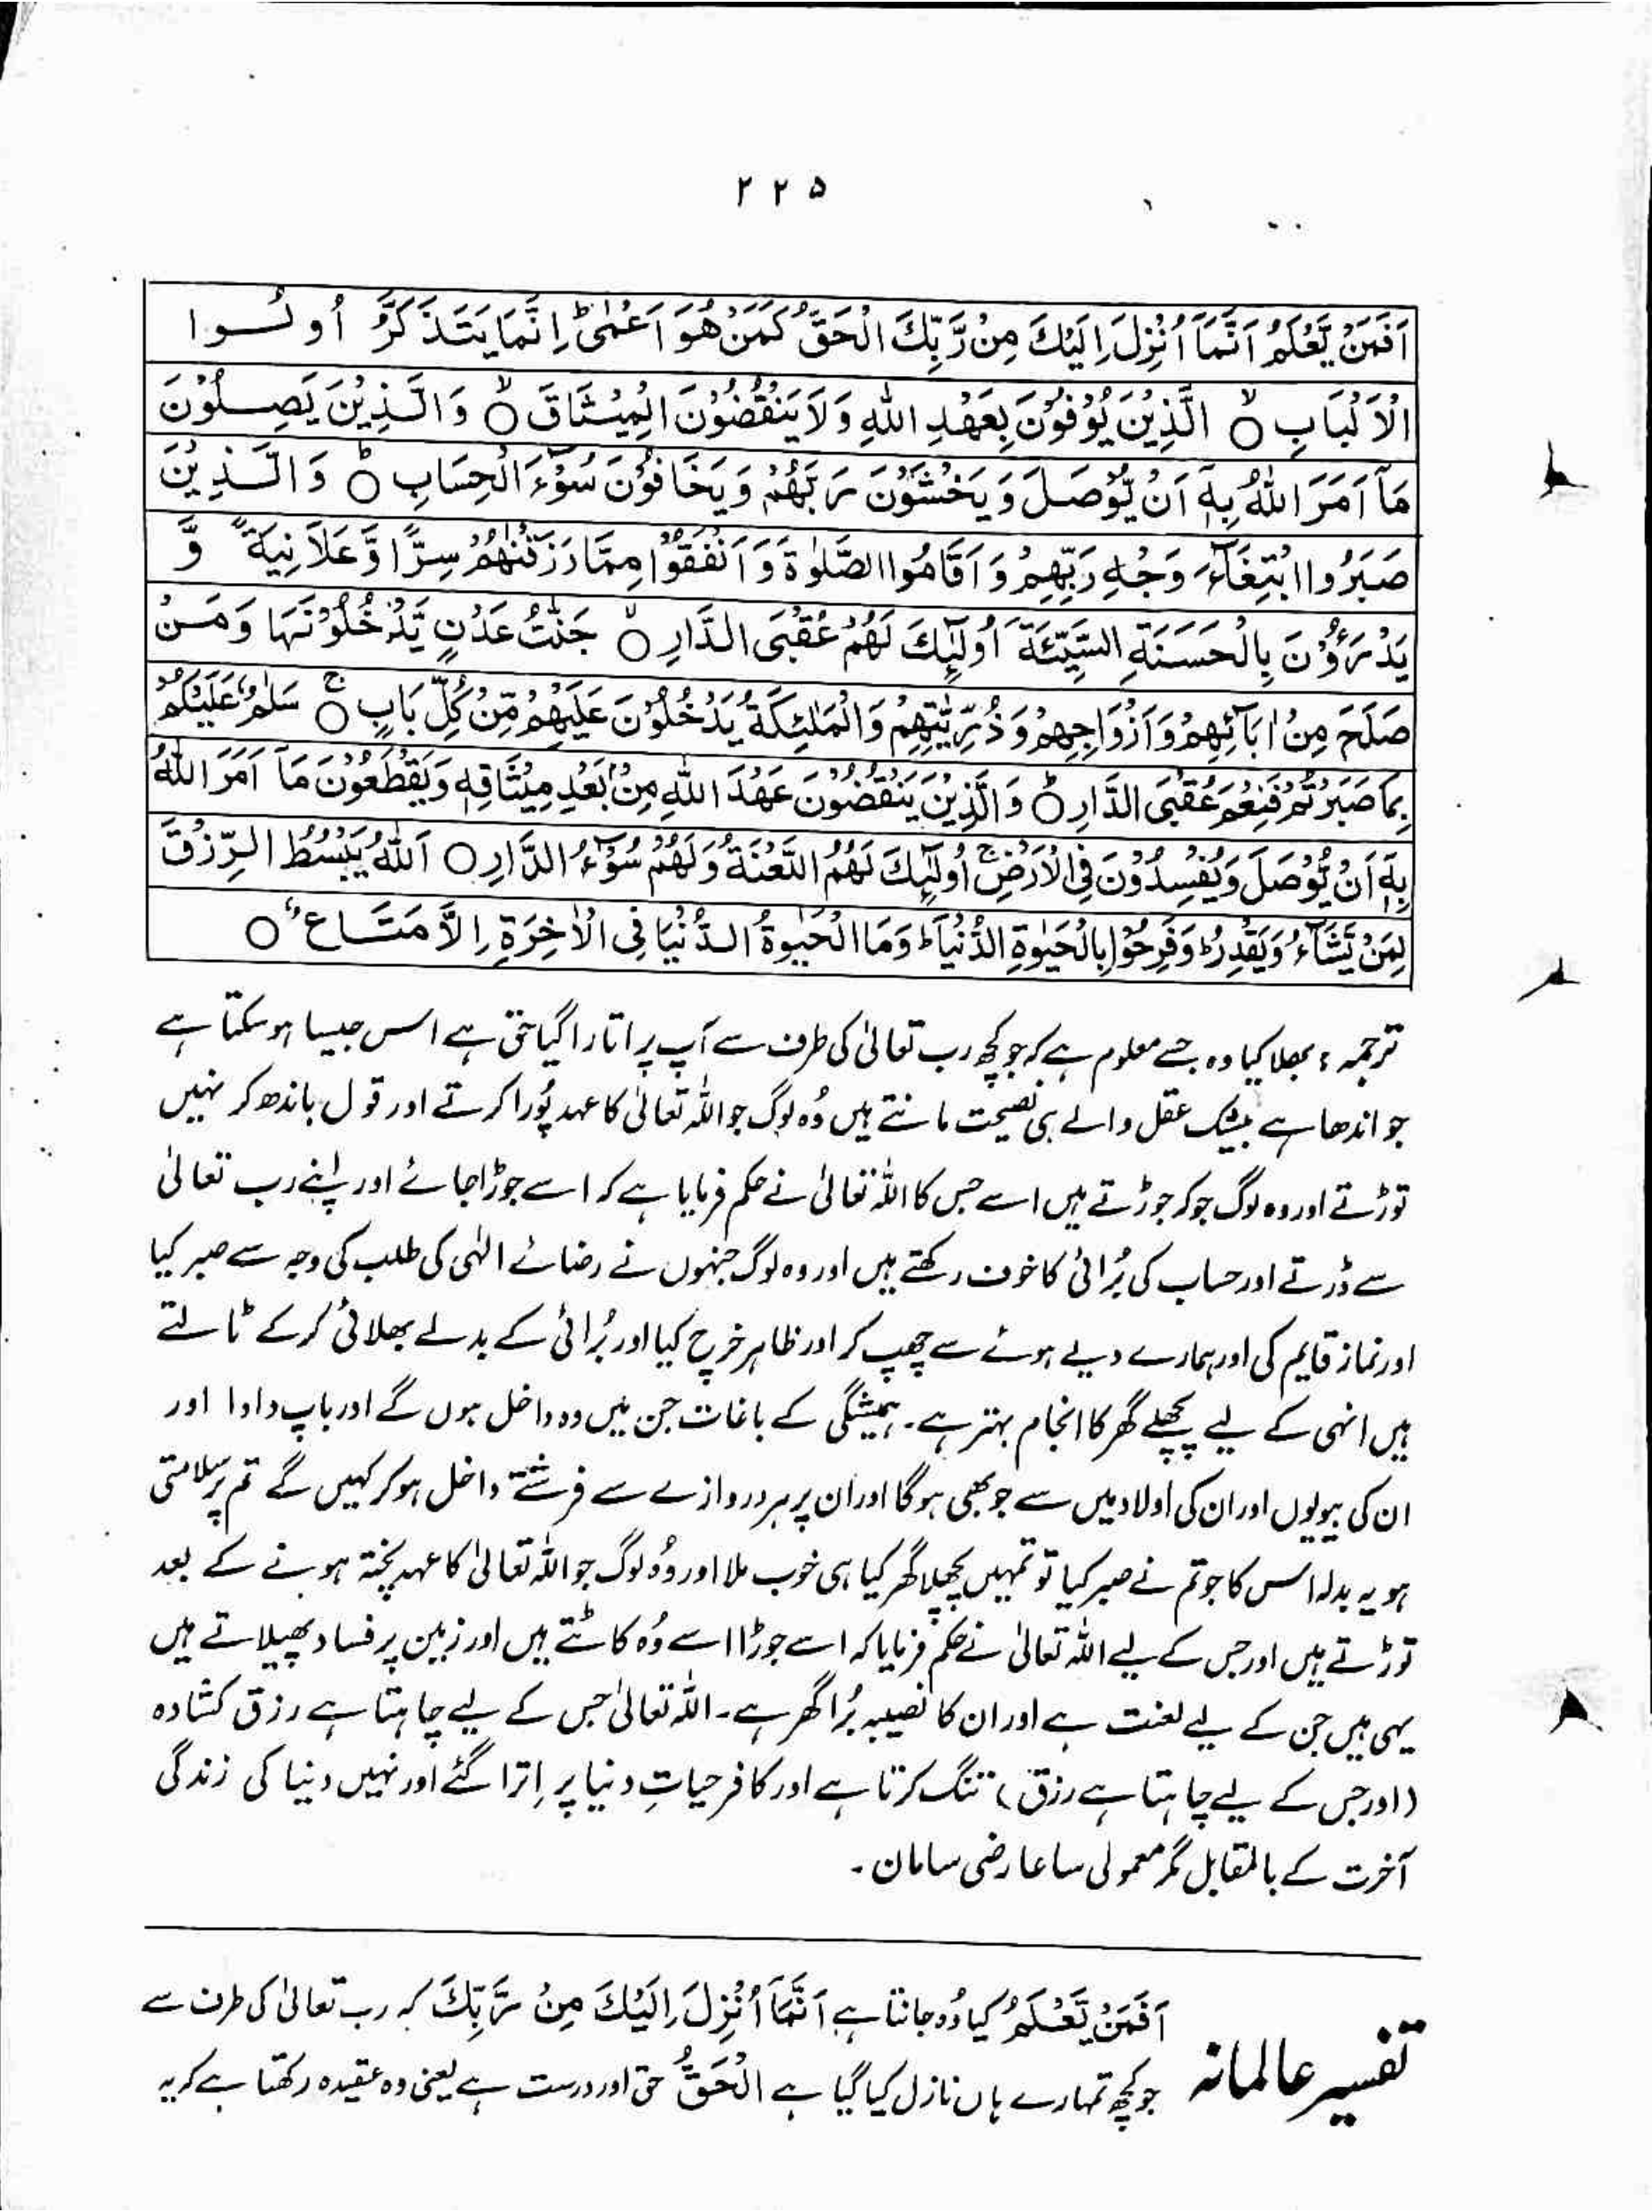 ۲۲۵
اَفَمَنْ يَّعْلَمُ اَنَّمَآ اُنْزِلَ اِلَيْكَ مِنْ رَّبِّكَ الْحَقُّ كَمَنْ هُوَ اَعْمٰىؕ اِنَّمَا يَتَذَكَّرُ اُولُوا
الْاَلْبَابِ ۙ الَّذِيْنَ يُوْفُوْنَ بِعَهْدِ اللّٰهِ وَلَا يَنْقُضُوْنَ الْمِيْثَاقَ ۙ وَالَّذِيْنَ يَصِلُوْنَ
مَآ اَمَرَ اللّٰهُ بِهٖٓ اَنْ يُّوْصَلَ وَيَخْشَوْنَ رَبَّهُمْ وَيَخَافُوْنَ سُوْٓءَ الْحِسَابِ ؕ وَالَّذِيْنَ
صَبَرُوا ابْتِغَآءَ وَجْهِ رَبِّهِمْ وَاَقَامُوا الصَّلٰوةَ وَاَنْفَقُوْا مِمَّا رَزَقْنٰهُمْ سِرًّا وَّعَلَانِيَةً وَّ
يَدْرَءُوْنَ بِالْحَسَنَةِ السَّيِّئَةَ اُولٰٓئِكَ لَهُمْ عُقْبَى الدَّارِ ۙ جَنّٰتُ عَدْنٍ يَّدْخُلُوْنَهَا وَمَنْ
صَلَحَ مِنْ اٰبَآئِهِمْ وَاَزْوَاجِهِمْ وَذُرِّيّٰتِهِمْ وَالْمَلٰٓئِكَةُ يَدْخُلُوْنَ عَلَيْهِمْ مِّنْ كُلِّ بَابٍ ۚ سَلٰمٌ عَلَيْكُمْ
بِمَا صَبَرْتُمْ فَنِعْمَ عُقْبَى الدَّارِ ؕ وَالَّذِيْنَ يَنْقُضُوْنَ عَهْدَ اللّٰهِ مِنْۢ بَعْدِ مِيْثَاقِهٖ وَيَقْطَعُوْنَ مَآ اَمَرَ اللّٰهُ
بِهٖٓ اَنْ يُّوْصَلَ وَيُفْسِدُوْنَ فِى الْاَرْضِۚ اُولٰٓئِكَ لَهُمُ اللَّعْنَةُ وَلَهُمْ سُوْٓءُ الدَّارِ ○ اَللّٰهُ يَبْسُطُ الرِّزْقَ
لِمَنْ يَّشَآءُ وَيَقْدِرُؕ وَفَرِحُوْا بِالْحَيٰوةِ الدُّنْيَاؕ وَمَا الْحَيٰوةُ الدُّنْيَا فِى الْاٰخِرَةِ اِلَّا مَتَاعٌ ○
ترجمہ: بھلا کیا وہ جسے معلوم ہے کہ جو کچھ رب تعالیٰ کی طرف سے آپ پر اتارا گیا حق ہے اس جیسا ہو سکتا ہے
جو اندھا ہے بیشک عقل والے ہی نصیحت مانتے ہیں وُہ لوگ جو اللہ تعالیٰ کا عہد پُورا کرتے اور قول باندھ کر نہیں
توڑتے اور وہ لوگ جو کہ جوڑتے ہیں اسے جس کا اللہ تعالیٰ نے حکم فرمایا ہے کہ اسے جوڑا جائے اور اپنے رب تعالیٰ
سے ڈرتے اور حساب کی بُرائی کا خوف رکھتے ہیں اور وہ لوگ جنہوں نے رضائے الٰہی کی طلب کی وجہ سے صبر کیا
اور نماز قایم کی اور ہمارے دیے ہوئے سے چھپ کر اور ظاہر خرچ کیا اور بُرائی کے بدلے بھلائی کرکے ٹالتے
ہیں انہی کے لیے پچھلے گھر کا انجام بہتر ہے۔ ہمیشگی کے باغات جن میں وہ داخل ہوں گے اور باپ دادا اور
ان کی بیویوں اور ان کی اولاد میں سے جو بھی ہو گا اور ان پر ہر دروازے سے فرشتے داخل ہو کر کہیں گے تم پر سلامتی
ہو یہ بدلہ اس کا جو تم نے صبر کیا تو تمہیں پچھلا گھر کیا ہی خوب ملا اور وُہ لوگ جو اللہ تعالیٰ کا عہد پختہ ہونے کے بعد
توڑتے ہیں اور جس کے لیے اللہ تعالیٰ نے حکم فرمایا کہ اسے جوڑا اسے وُہ کاٹتے ہیں اور زمین پر فساد پھیلاتے ہیں
یہی ہیں جن کے لیے لعنت ہے اور ان کا نصیبہ بُرا گھر ہے۔ اللہ تعالیٰ جس کے لیے چاہتا ہے رزق کشادہ
(اور جس کے لیے چاہتا ہے رزق) تنگ کرتا ہے اور کافر حیاتِ دنیا پر اِترا گئے اور نہیں دنیا کی زندگی
آخرت کے بالمقابل مگر معمولی سا عارضی سامان۔
تفسیر عالمانہ
اَفَمَنْ يَّعْلَمُ کیا وُہ جانتا ہے اَنَّمَآ اُنْزِلَ اِلَيْكَ مِنْ رَّبِّكَ کہ رب تعالیٰ کی طرف سے
جو کچھ تمہارے ہاں نازل کیا گیا ہے الْحَقُّ حق اور درست ہے یعنی وہ عقیدہ رکھتا ہے کہ یہ